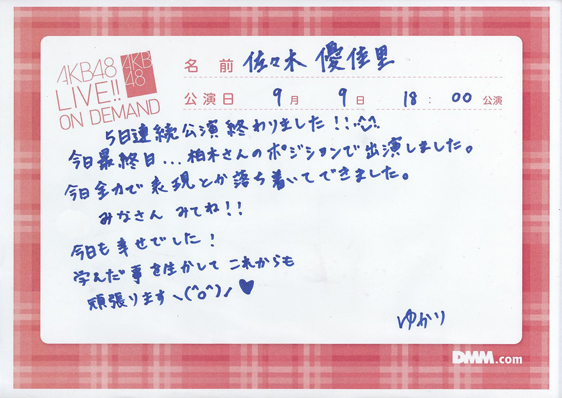 AKB48
LIVE!!
ON DEMAND
AKB
48
名 前 佐々木 優佳里
公演日 9月 9日 18:00 公演
5日連続公演終わりました!!^^
今日最終日...柏木さんのポジションで出演しました。
今日全力で表現とか落ち着いてできました。
みなさん みてね!!
今日も幸せでした!
学んだ事を生かして これからも
頑張ります\(^o^)/♥
ゆかり
DMM.com